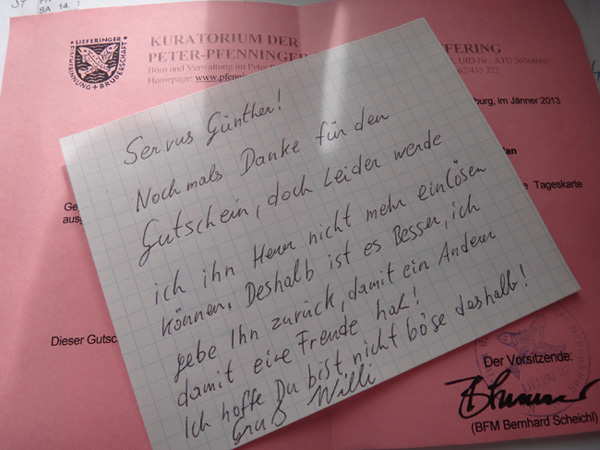 SA 14.
LIEFERINGER
KURATORIUM DER
PETER-PFENNINGER
FERING
Büro und Verwaltung im Peter
UID-Nr.: ATU
Homepage: www.pfenn
435 322
burg, im Jänner 2013
Servus Günther!
Nochmals Danke für den
Gutschein, doch Leider werde
ich ihn Heuer nicht mehr einlösen
können. Deshalb ist es Besser, ich
gebe Ihn zurück, damit ein Anderer
damit eine Freude hat!
Ich hoffe Du bist nicht böse deshalb!
Gruß Willi
Ge
ausg
an
e Tageskarte
Dieser Gutsc
Der Vorsitzende:
(BFM Bernhard Scheichl)